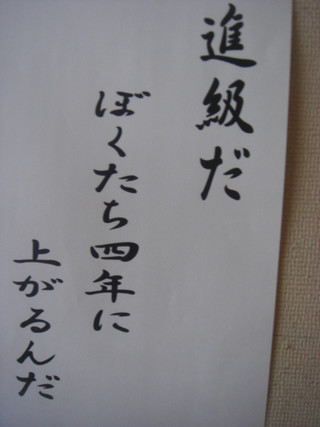 進級だ
ぼくたち四年に
上がるんだ